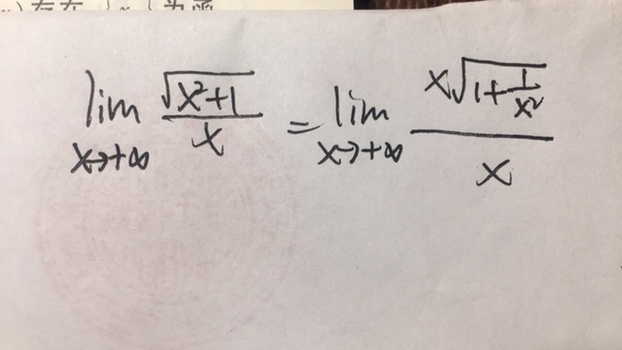 存在
为函
lim_{x→+∞} \frac{\sqrt{x²+1}}{x} = lim_{x→+∞} \frac{x\sqrt{1+\frac{1}{x²}}}{x}